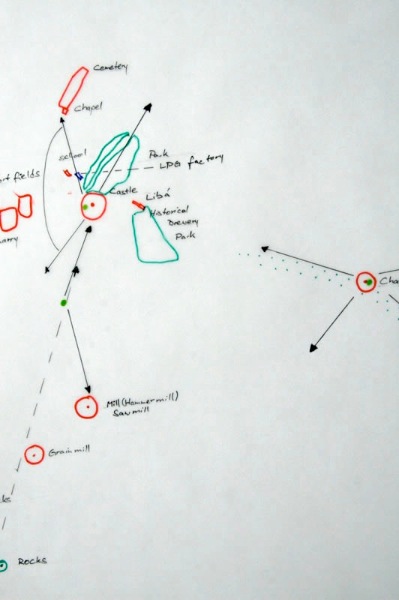 Cemetery
Chapel
School
Park
LPG factory
Castle
Libá
Historical
Brewery
Park
Mill (Hammermill)
Sawmill
Grain mill
Rocks